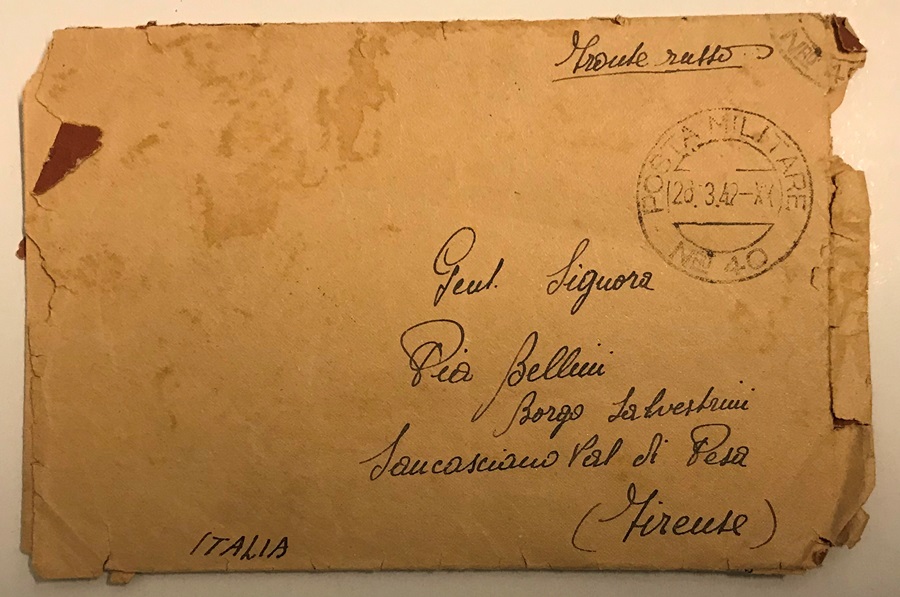 Fronte russo
NR. 4
POSTA MILITARE
28.3.42-XX
NR. 40
Gent. Signora
Pia Bellini
Borgo Salvestrini
Sancasciano Val di Pesa
(Firenze)
ITALIA